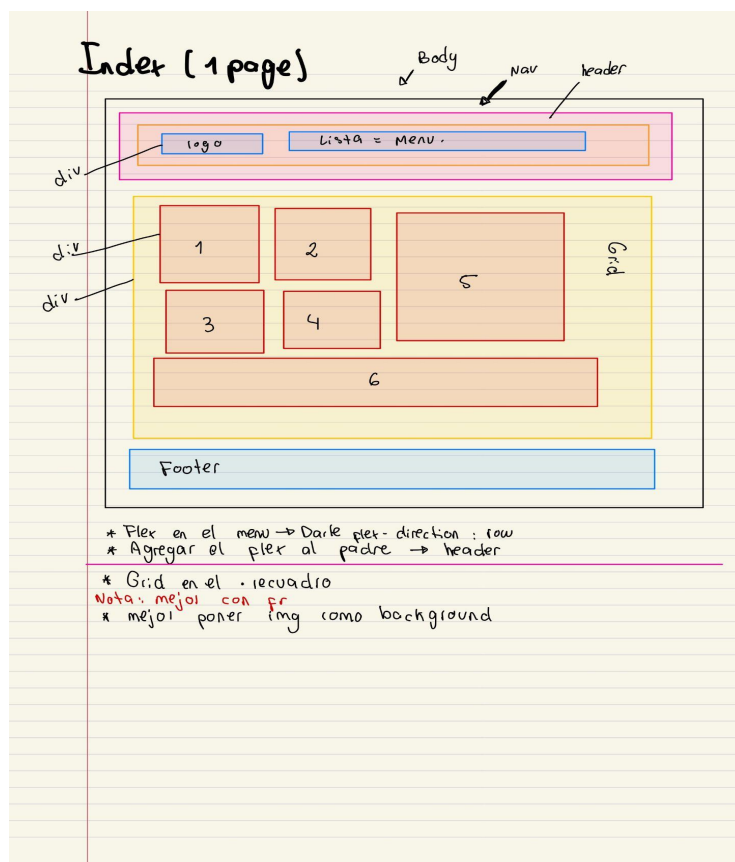 Index (1 page)
Body
Nav
header
logo
Lista = Menu.
div
div
1
2
5
Grid
div
3
4
6
Footer
* Flex en el menu → Darle flex-direction : row
* Agregar el flex al padre → header
* Grid en el .recuadro
Nota: mejor con fr
* mejor poner img como background